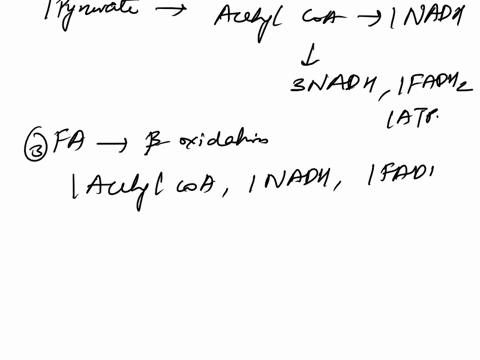 1 Pyruvate → Acetyl CoA → 1 NADH
↓
3NADH, 1 FADH2
1 ATP.
③ FA → β oxidation
1 Acetyl CoA, 1 NADH, 1 FADH